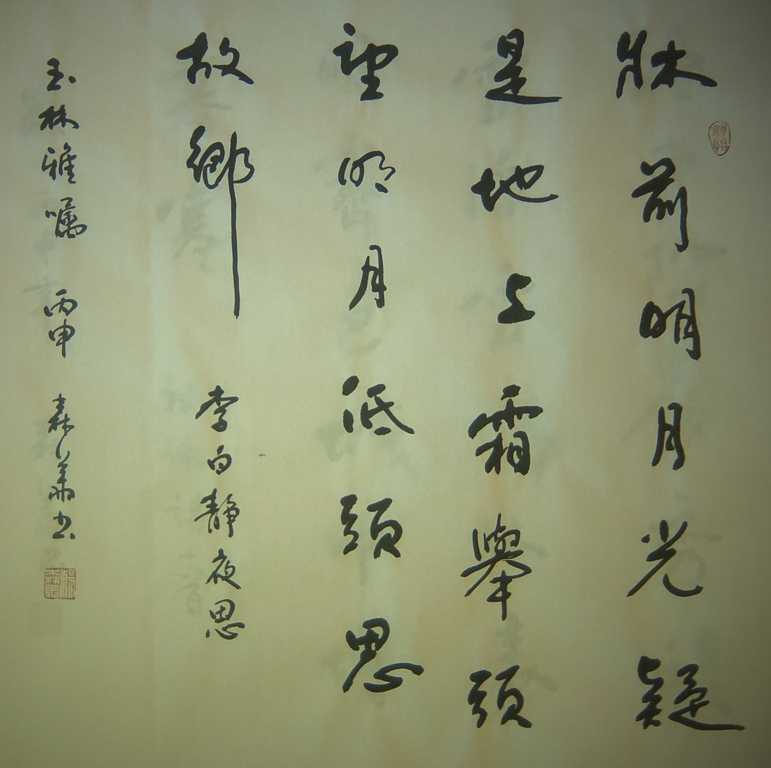 牀前明月光疑
是地上霜舉頭
望明月低頭思
故鄉 李白靜夜思
玉林雅囑 丙申 森華书